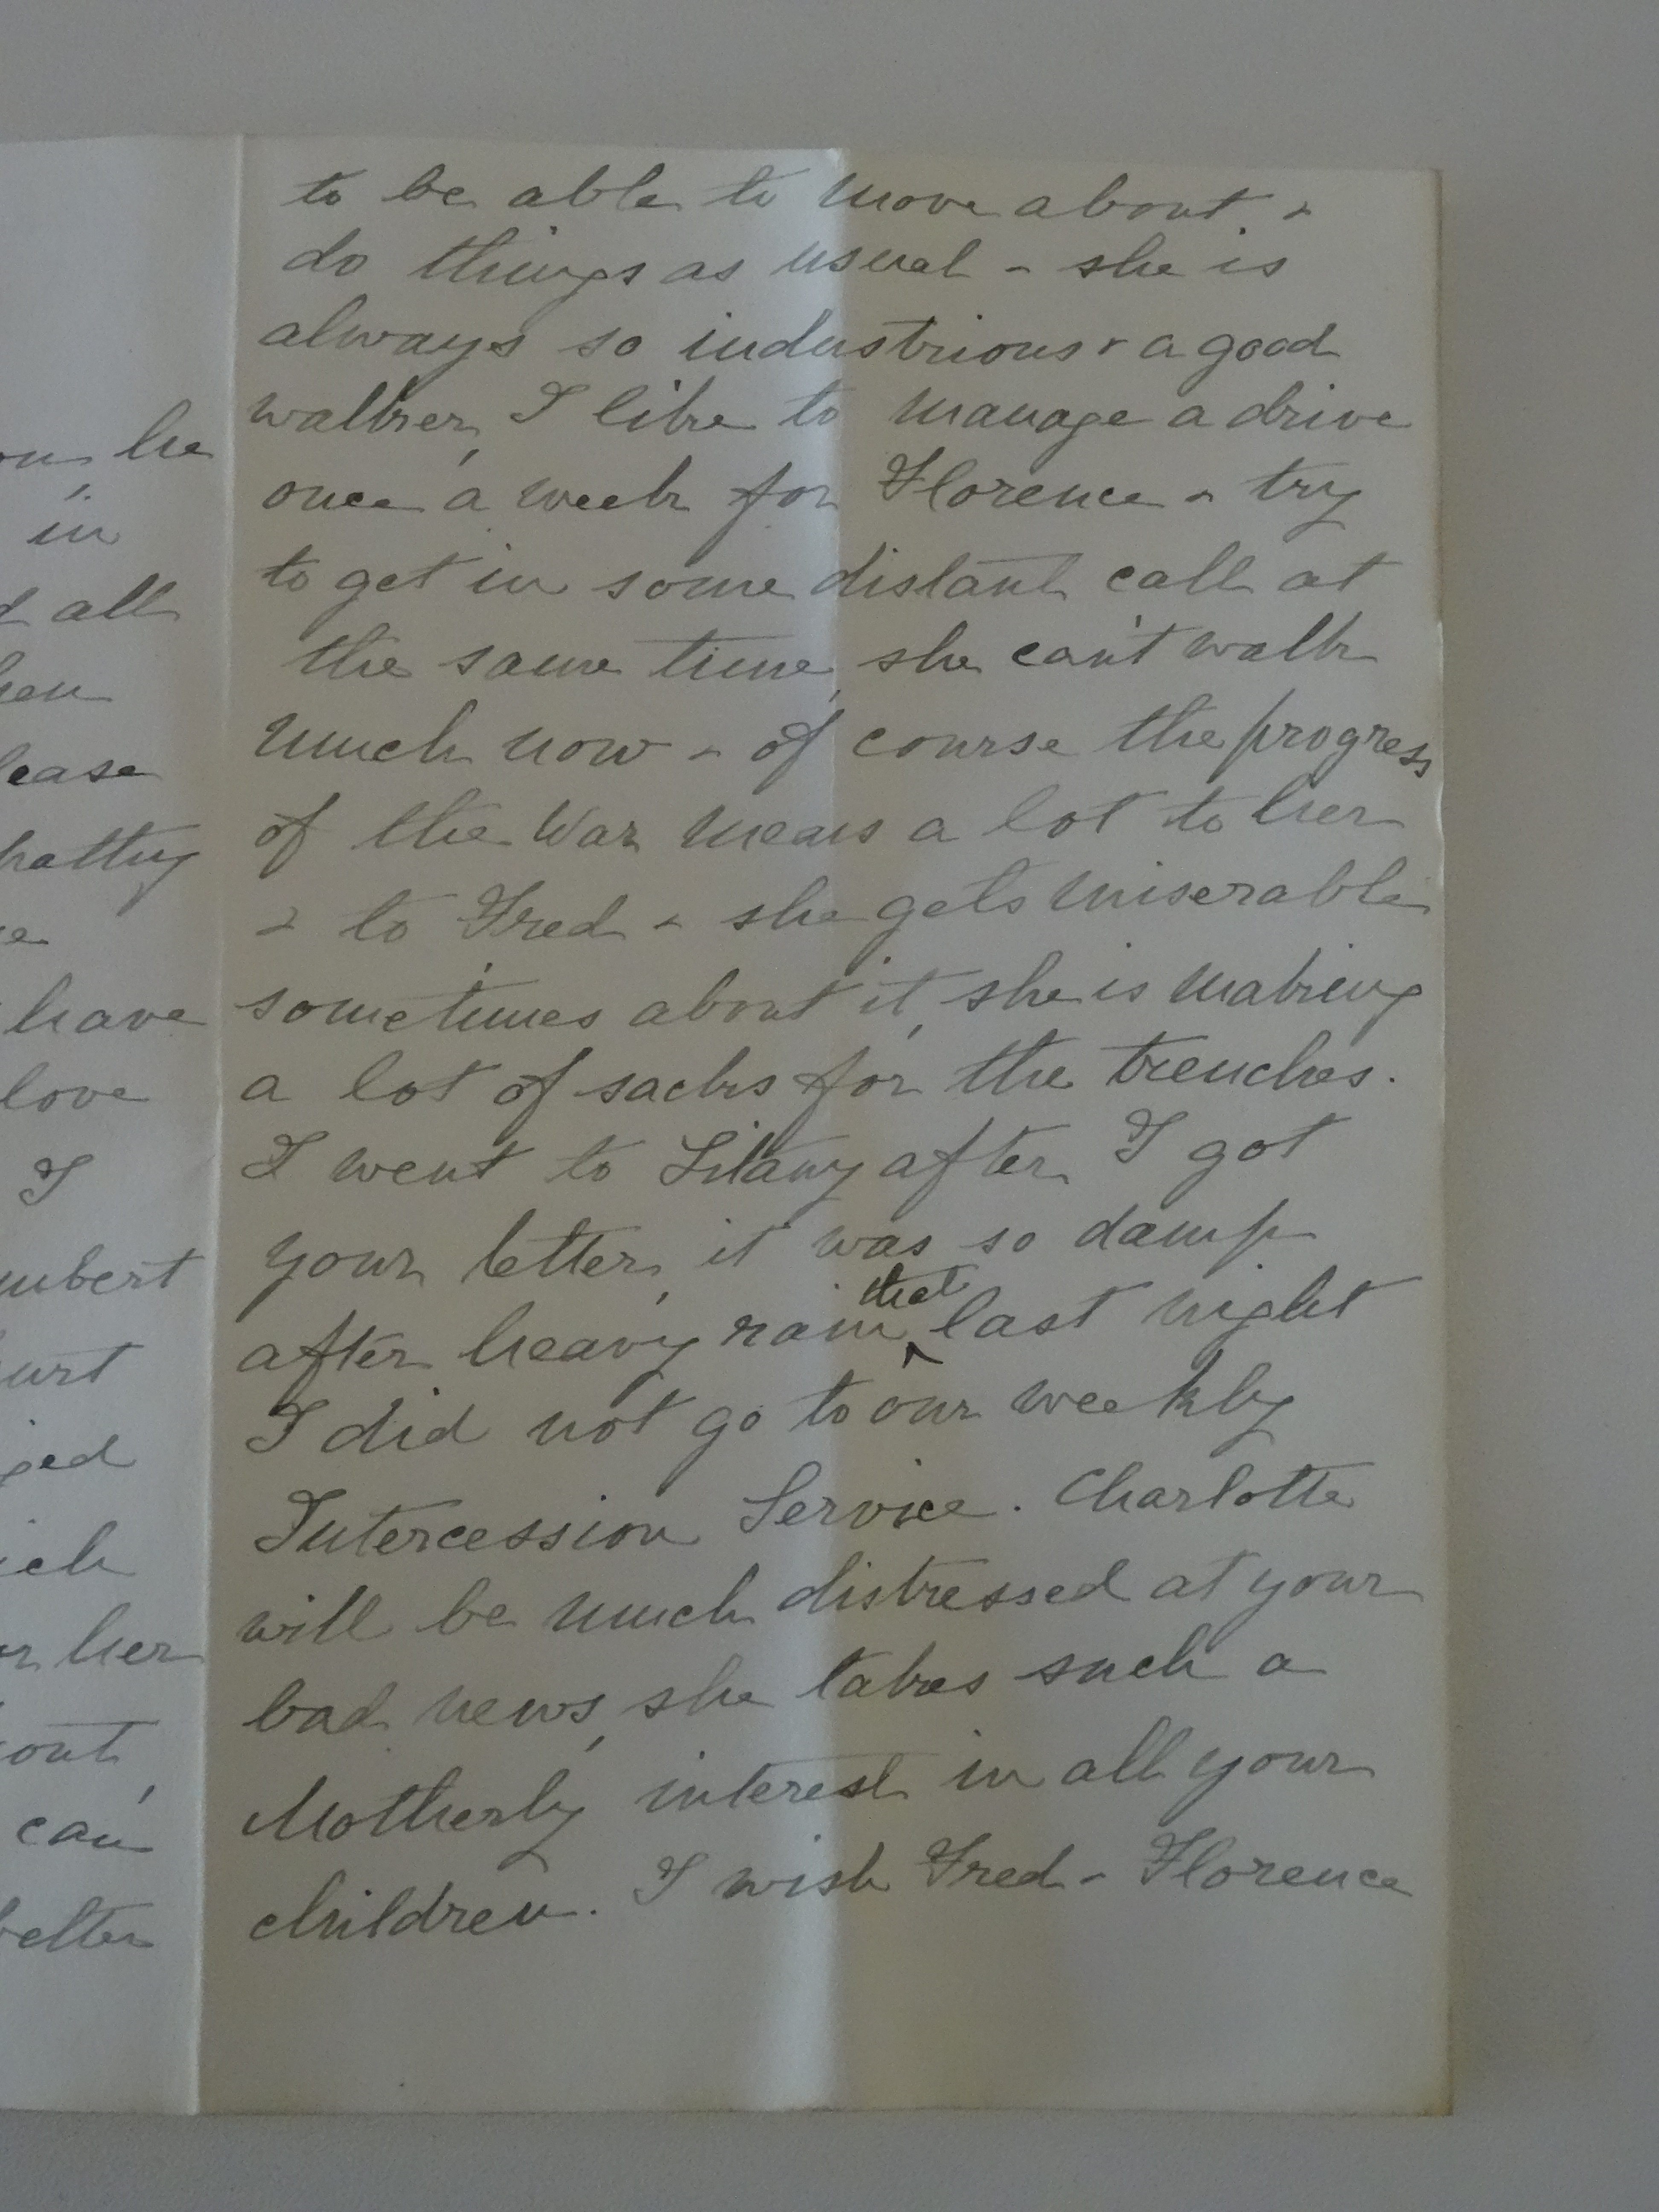 on he
in
all
lease
have
love
I
out,
can
better
to be able to move about &
do things as usual - she is
always so industrious & a good
walker, I like to manage a drive
once a week for Florence & try
to get in some distant call at
the same time, she can't walk
much now - of course the progress
of the War means a lot to her
& to Fred & she gets miserable
sometimes about it, she is making
a lot of sacks for the trenches.
I went to Litany after I got
your letter, it was so damp
after heavy rain that last night
I did not go to our weekly
Intercession Service. Charlotte
will be much distressed at your
bad news, she takes such a
Motherly interest in all your
children. I wish Fred & Florence